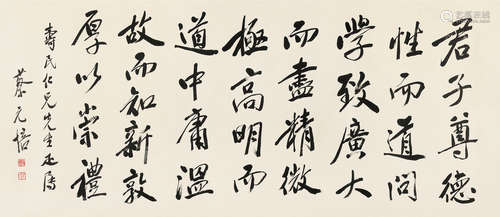 君子尊德
性而道問
學致廣大
而盡精微
極高明而
道中庸溫
故而知新敦
厚以崇禮
壽民仁兄先生正
蔡元培